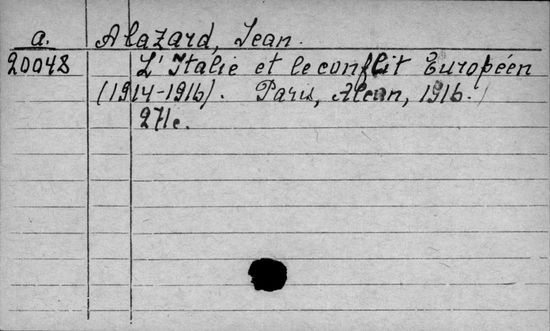 a. Alazard, Jean.
20048 L'Italie et le conflit Européen
(1914-1916). Paris, Alcan, 1916.
271c.